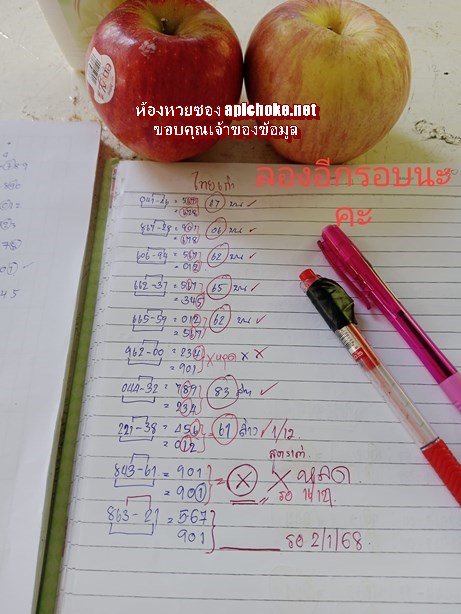 ห้องหวยซอง apichoke.net
ขอบคุณเจ้าของข้อมูล
ลองอีกรอบนะ
คะ
ไทยเก่า
= 567
= 678
67 บน ✓
867-28 = 901
= 678
06 บน ✓
606-94 = 567
= 012
62 บน ✓
662-37 = 567
= 345
65 บน ✓
665-59 = 012
= 567
62 บน ✓
962-00 = 234
= 901
× หลุด × ×
044-32 = 789
= 234
83 ล่าง ✓
221-38 = 456
= 012
61 ล่าว ✓ 1/12
843-61 = 901
= 901
= × × หลุด
รอ 14/12/
863-21 = 567
901
รอ 2/1/68.
45